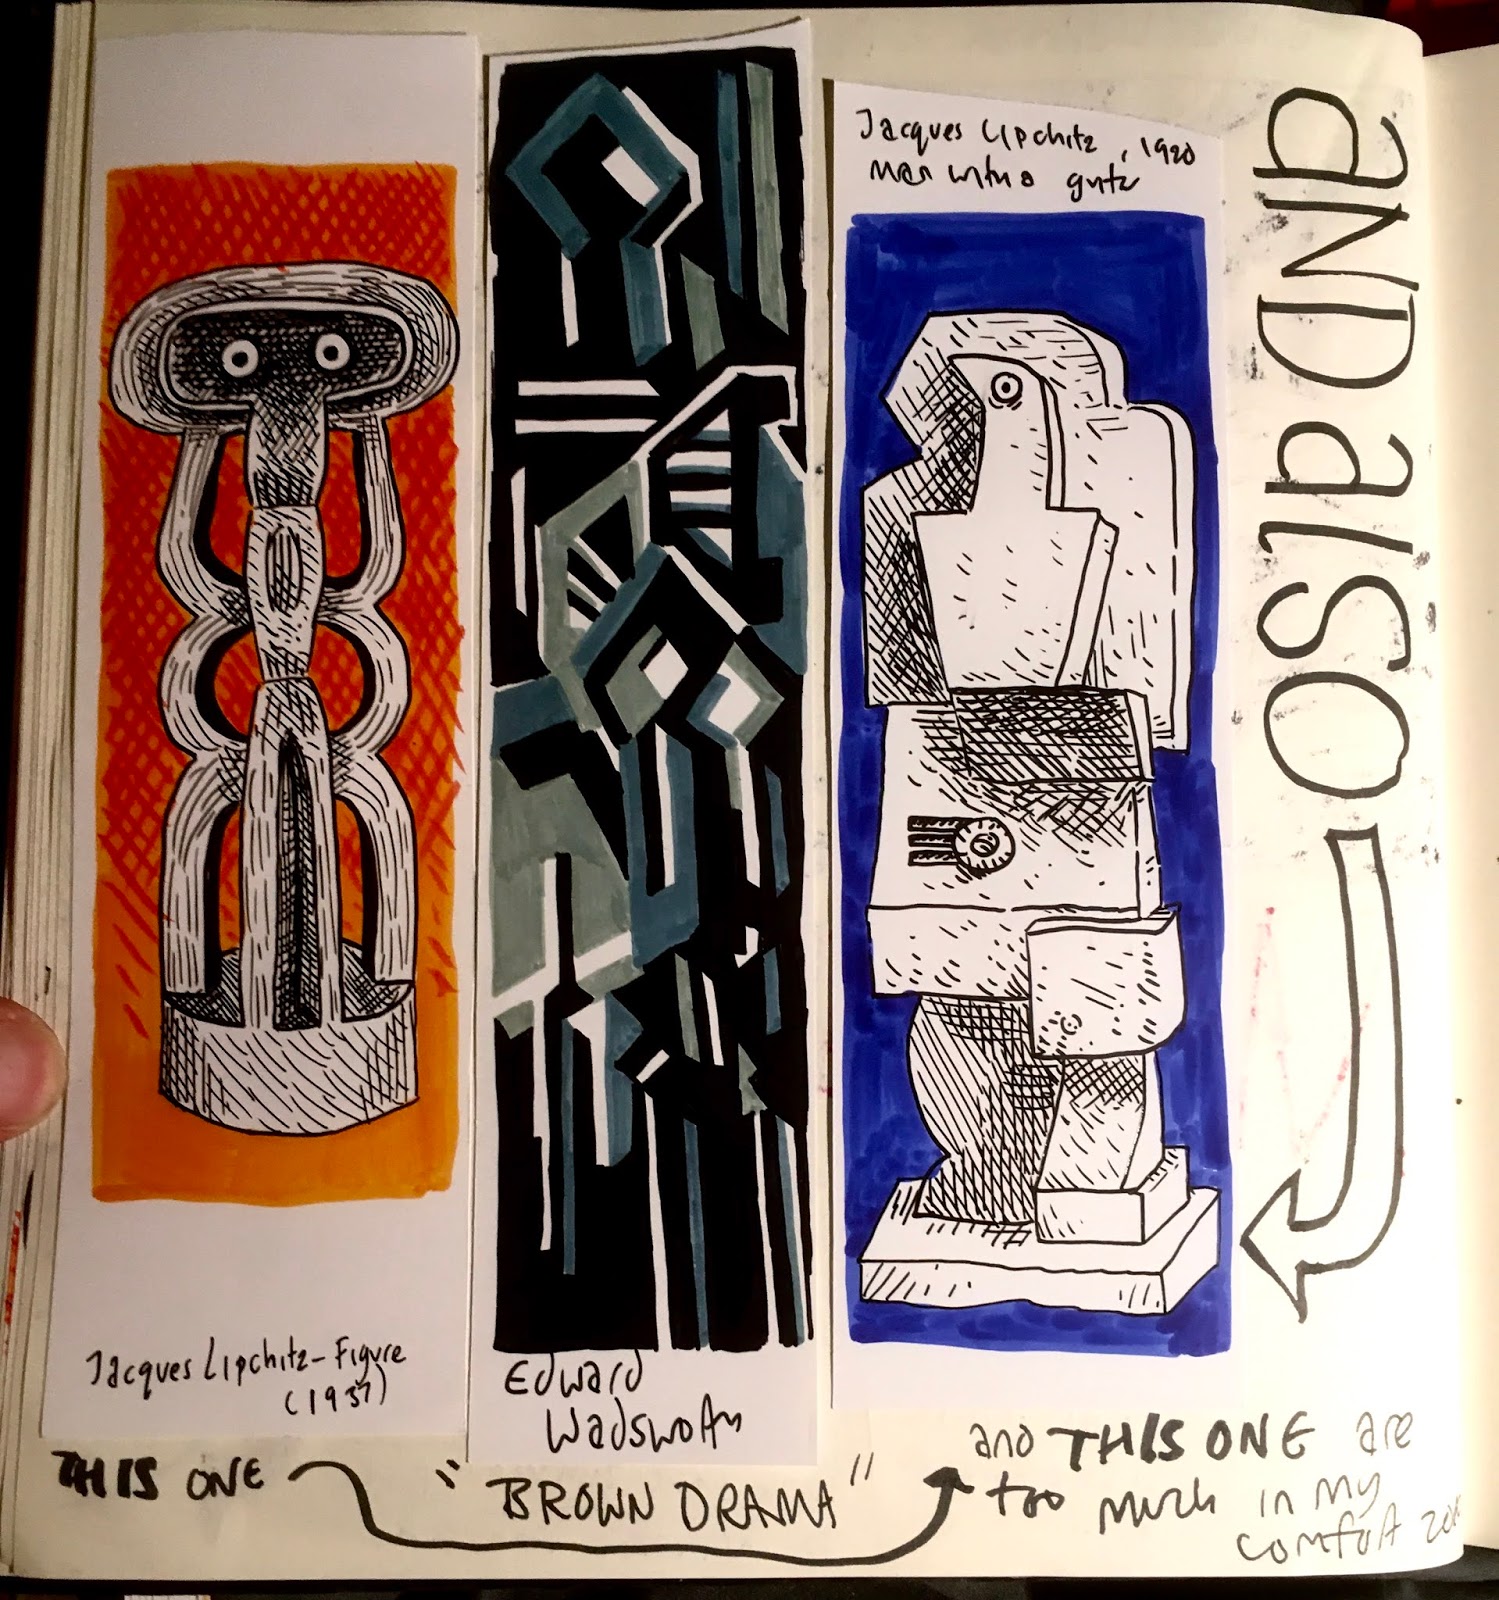 Jacques Lipchitz, 1920
Man with a guitr
AND alSO
Jacques Lipchitz-Figure
(1937)
Edward
Wadsworth
THIS ONE
"BROWN DRAMA"
and THIS ONE are
too much in my
comfort zone